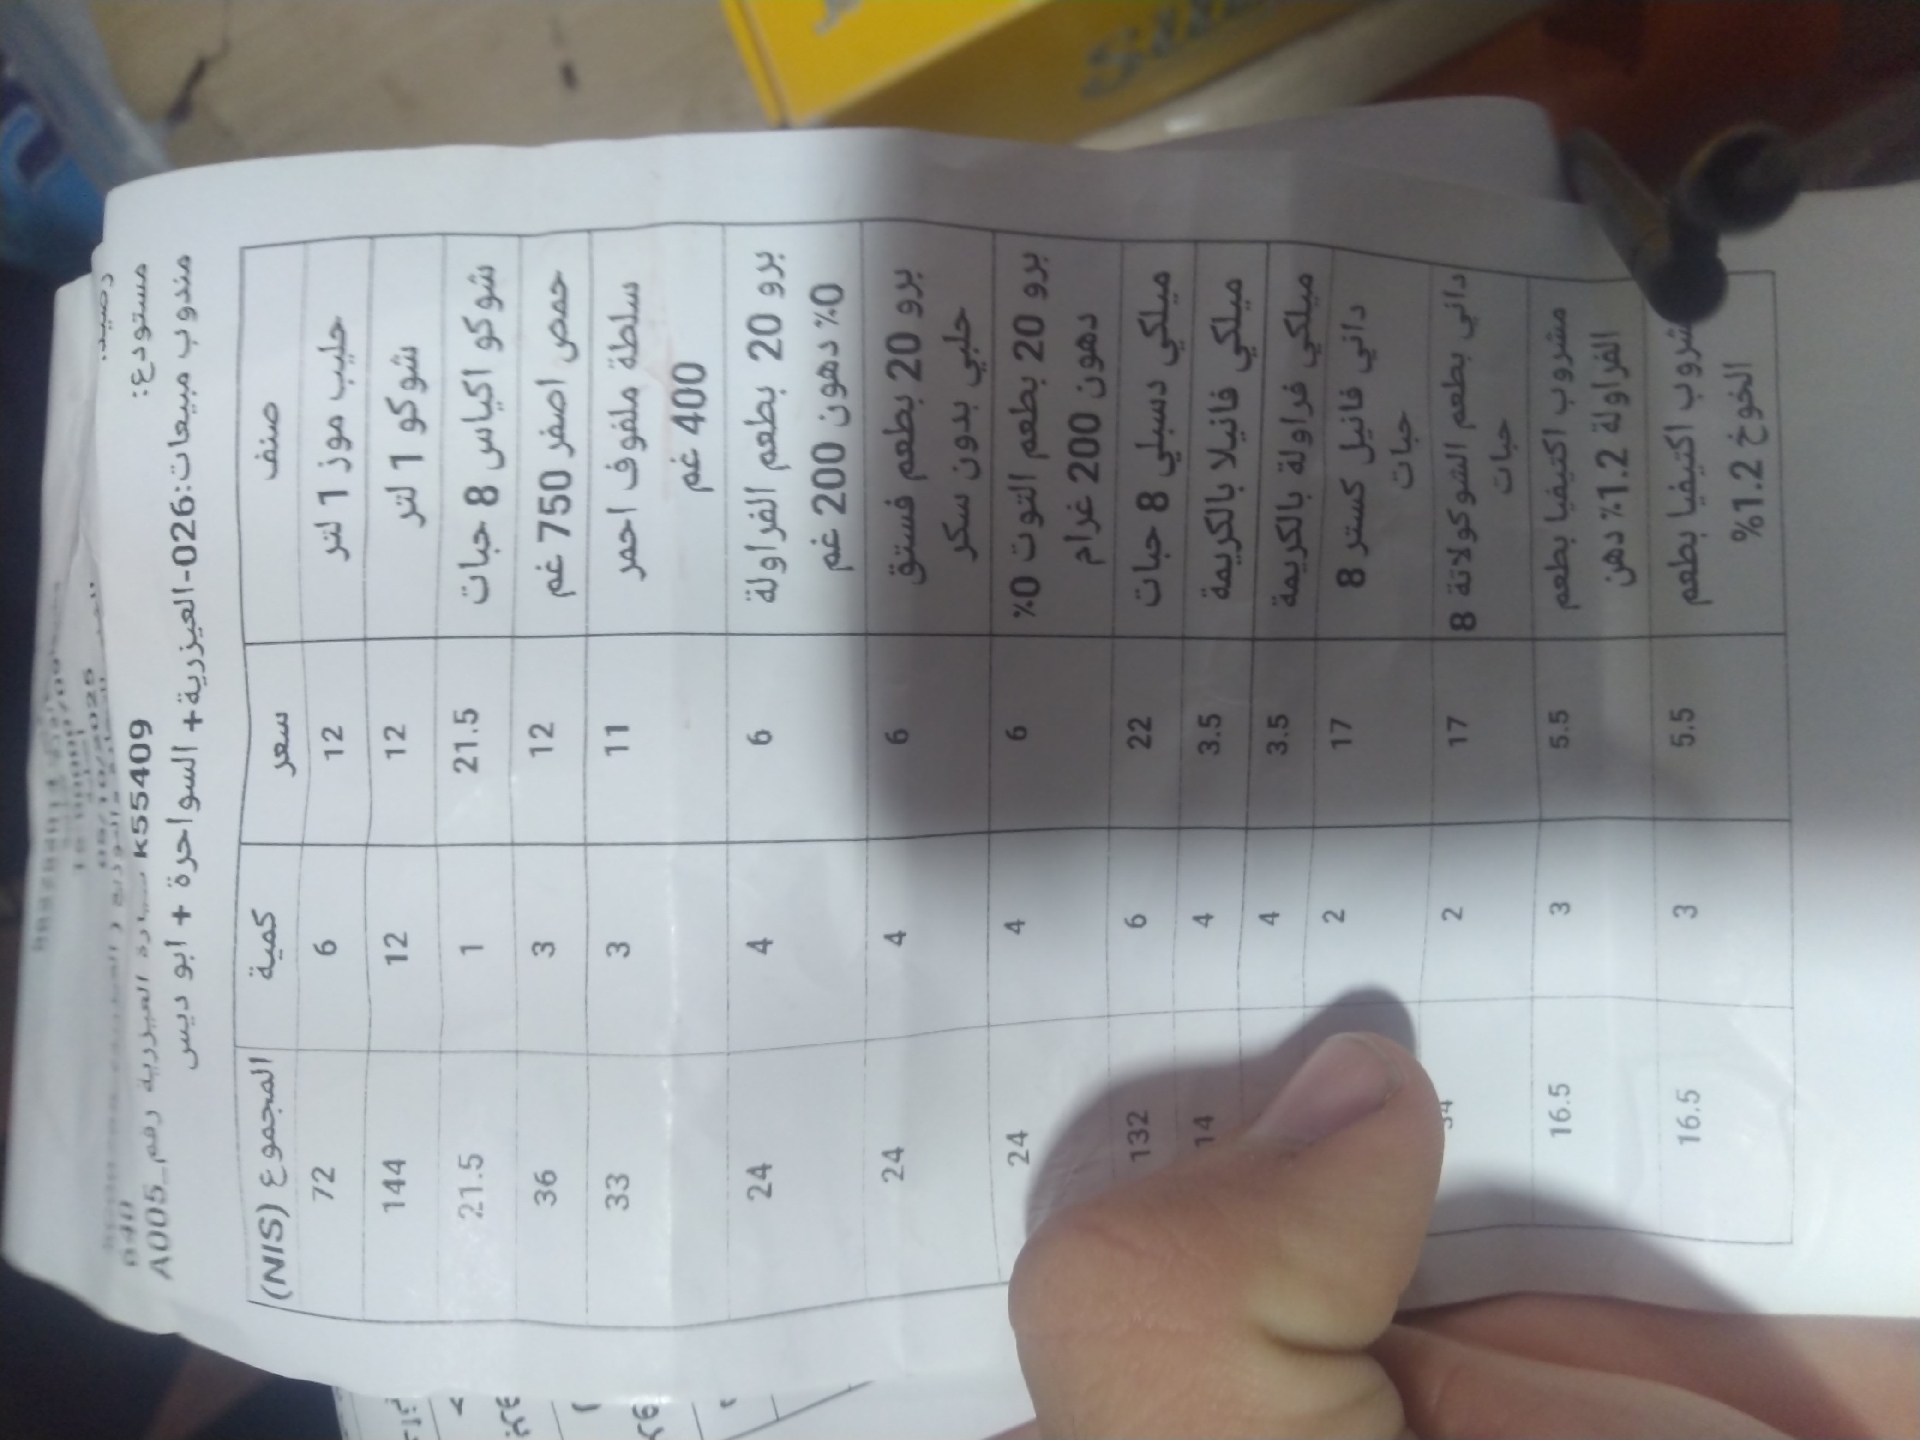 مستودع: سيارة العيزرية رقم_A005 K555409
مندوب مبيعات:026-العيزرية+ السواحرة + ابو ديس
صنف سعر كمية المجموع (NIS)
حليب موز 1 لتر 12 6 72
شوكو 1 لتر 12 12 144
شوكو اكياس 8 حبات 21.5 1 21.5
حمص اصفر 750 غم 12 3 36
سلطة ملفوف احمر 11 3 33
400 غم
برو 20 بطعم الفراولة 6 4 24
0% دهون 200 غم
برو 20 بطعم فستق 6 4 24
حلبي بدون سكر
برو 20 بطعم التوت 0% 6 4 24
دهون 200 غرام
ميلكي دسبلي 8 حبات 22 6 132
ميلكي فانيلا بالكريمة 3.5 4 14
ميلكي فراولة بالكريمة 3.5 4
داني فانيل كستر 8 17 2
حبات
داني بطعم الشوكولاتة 8 17 2
حبات
مشروب اكتيفيا بطعم 5.5 3 16.5
الفراولة 1.2% دهن
مشروب اكتيفيا بطعم 5.5 3 16.5
الخوخ 1.2%